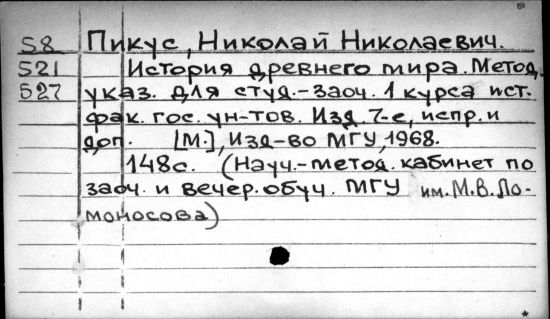 58 Пикус, Николай Николаевич.
521 История древнего мира. Метод.
527 указ. для студ.-заоч. 1 курса ист.
фак. гос. ун-тов. Изд. 7-е, испр. и
доп. [М.], Изд-во МГУ, 1968.
148с. (Науч.-метод. кабинет по
заоч. и вечер. обуч. МГУ им. М.В. Ло-
моносова)